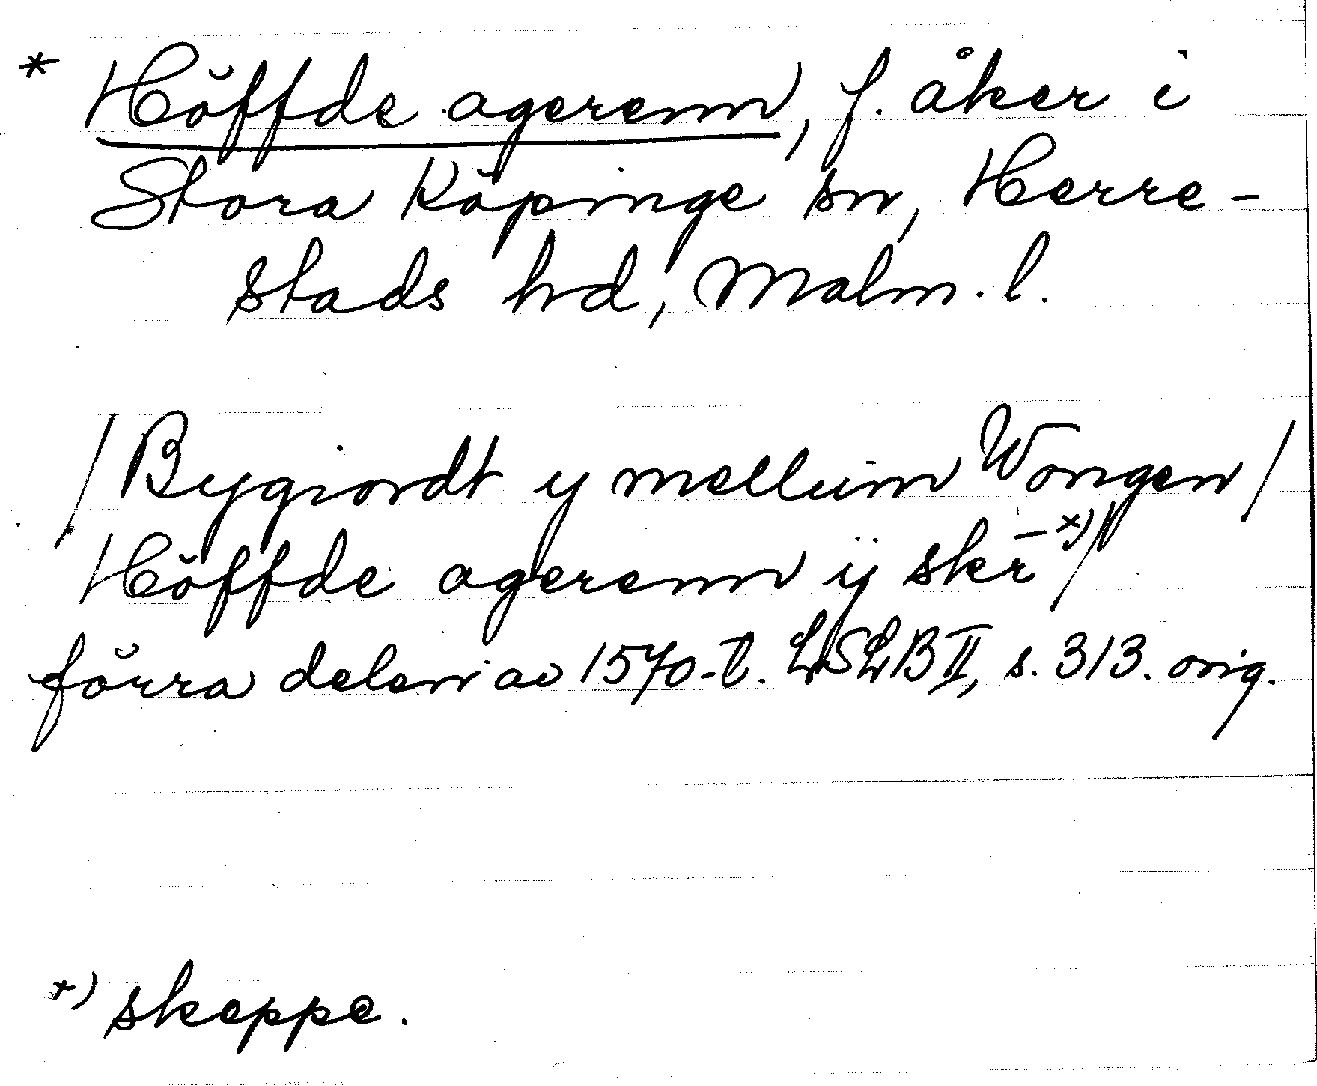 * Höffde agerenn, f. åker i
Stora Köpinge sn, Herre-
stads hd, Malm. l.
/Bygiordt y mellum Wongen/
Höffde agerenn ÿ skr̄ *)/
förra delen av 1570-t. LSLB II, s. 313. orig.
*) skeppe.